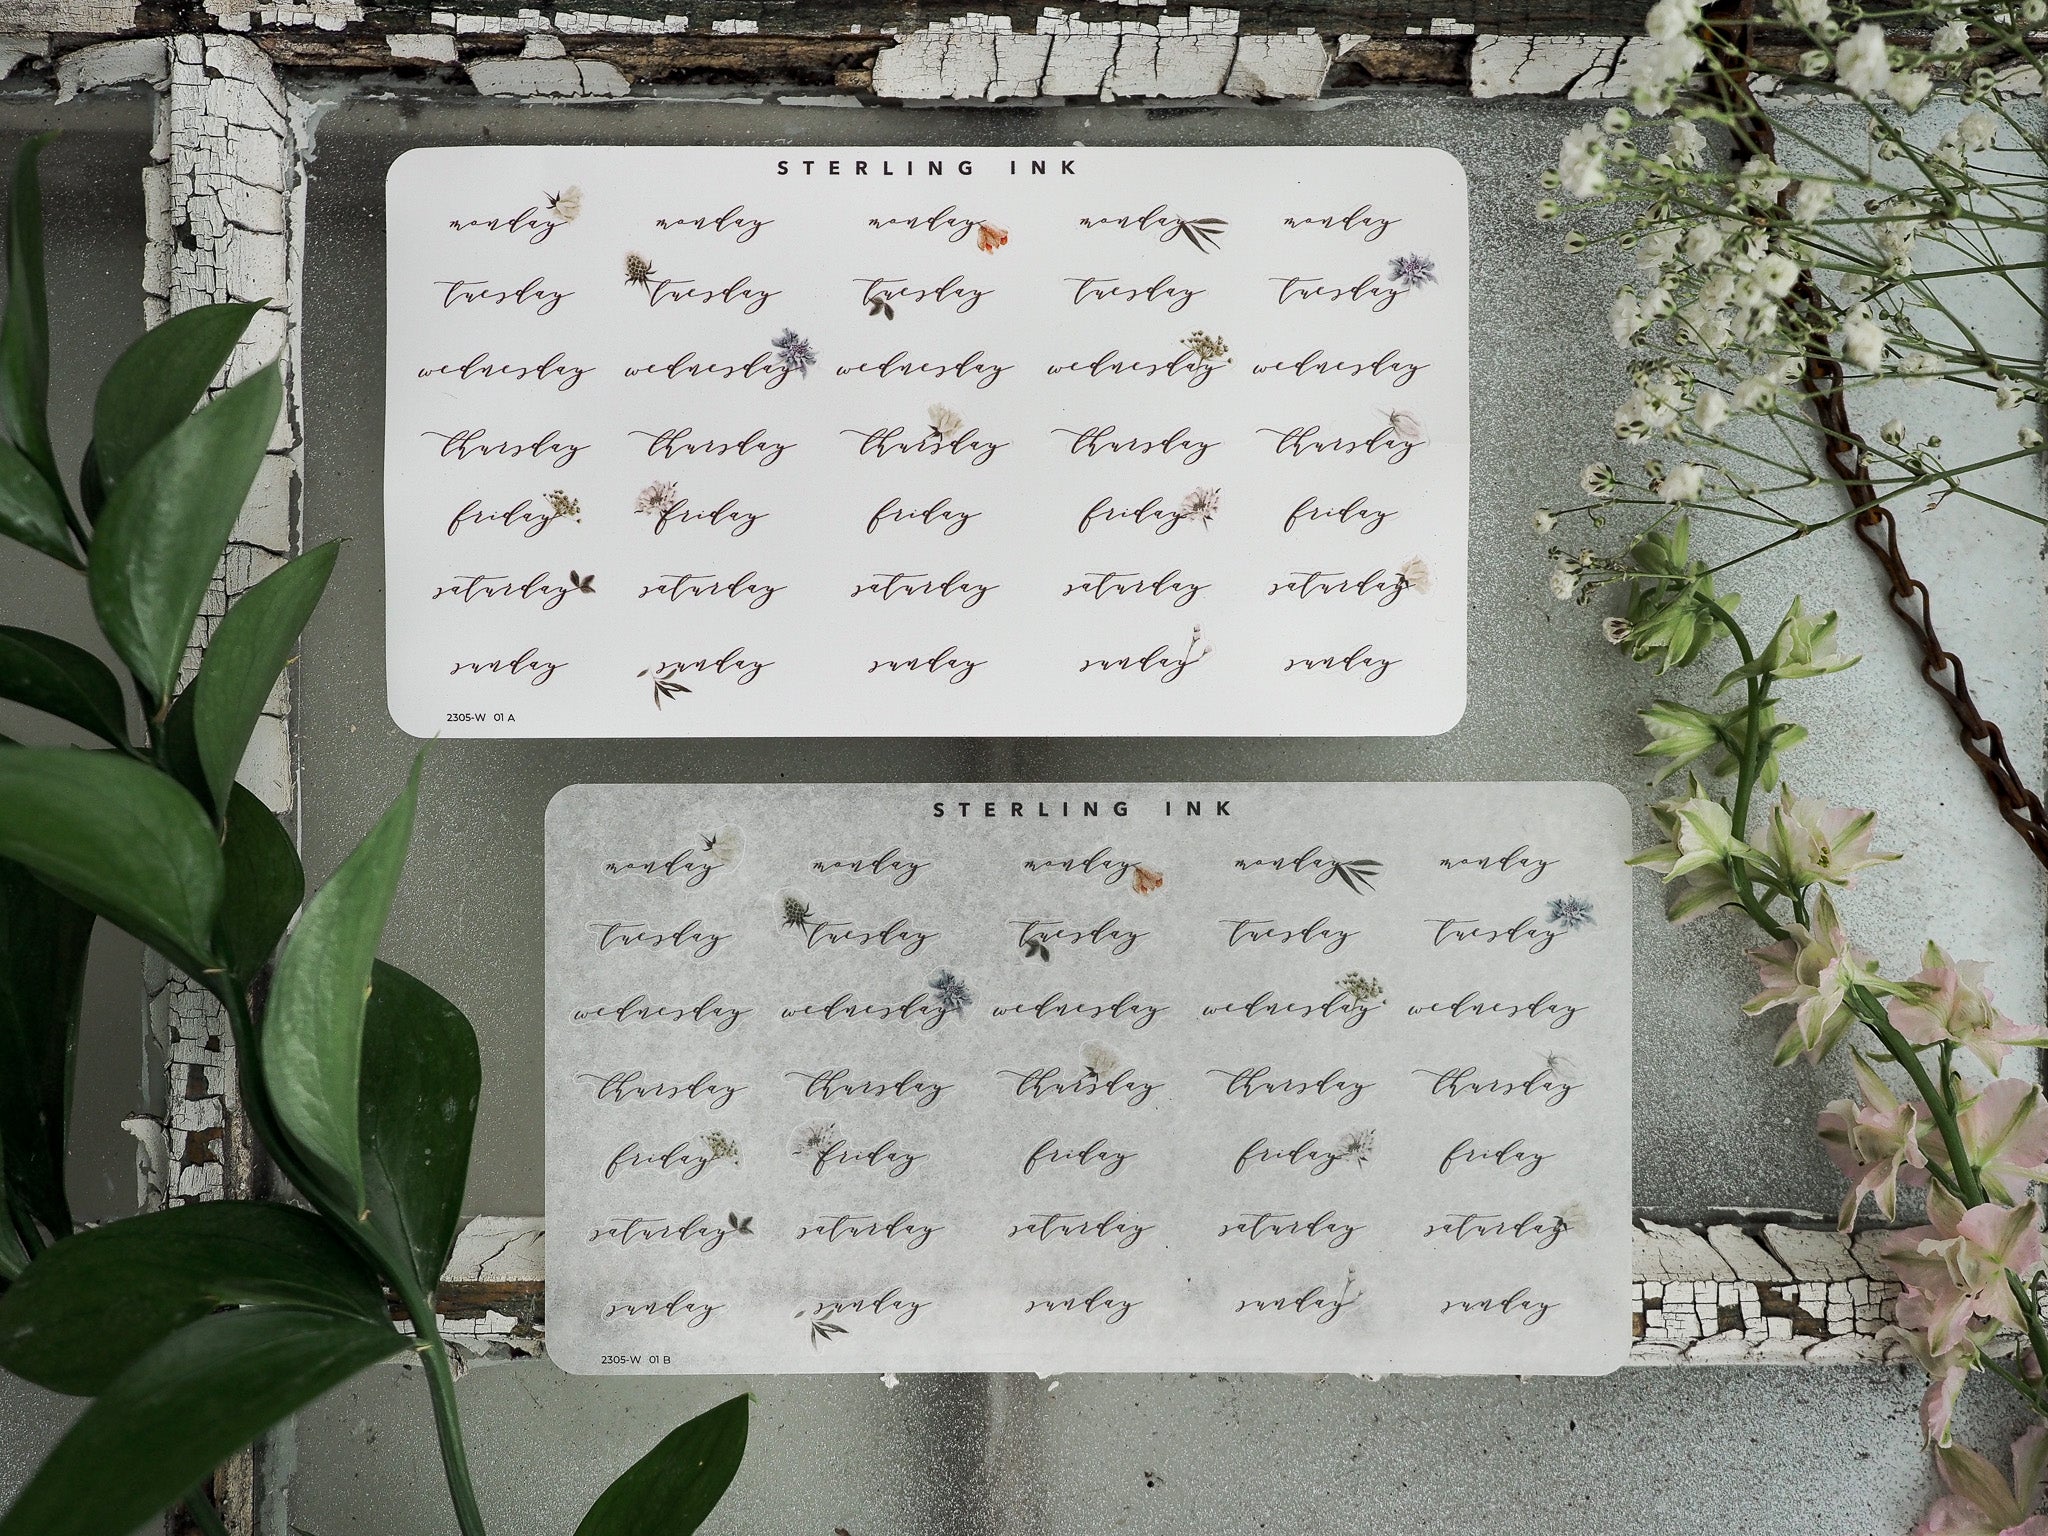 STERLING INK
monday monday monday monday monday
tuesday tuesday tuesday tuesday tuesday
wednesday wednesday wednesday wednesday wednesday
thursday thursday thursday thursday thursday
friday friday friday friday friday
saturday saturday saturday saturday saturday
sunday sunday sunday sunday sunday
2305-W 01 A
STERLING INK
monday monday monday monday monday
tuesday tuesday tuesday tuesday tuesday
wednesday wednesday wednesday wednesday wednesday
thursday thursday thursday thursday thursday
friday friday friday friday friday
saturday saturday saturday saturday saturday
sunday sunday sunday sunday sunday
2305-W 01 B